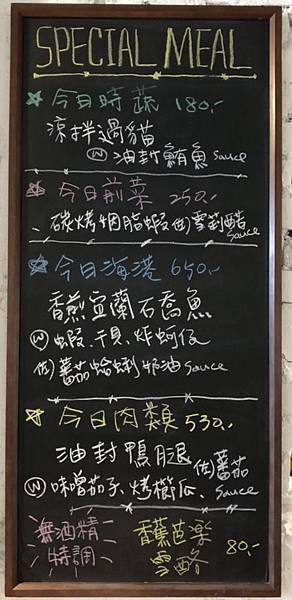 SPECIAL MEAL
今日時蔬 180.-
涼拌過貓
W 油封鮪魚 sauce
今日前菜 250.-
碳烤胭脂蝦 佐 雪莉醋
sauce
今日海港 650.-
香煎宜蘭石喬魚
W 蝦、干貝、炸蚵仔
佐 蕃茄蛤蜊奶油 sauce
今日肉類 530.-
油封鴨腿 佐 蕃茄
W 味噌茄子、烤櫛瓜、sauce
無酒精
特調
香蕉芭樂
雪酪
80.-